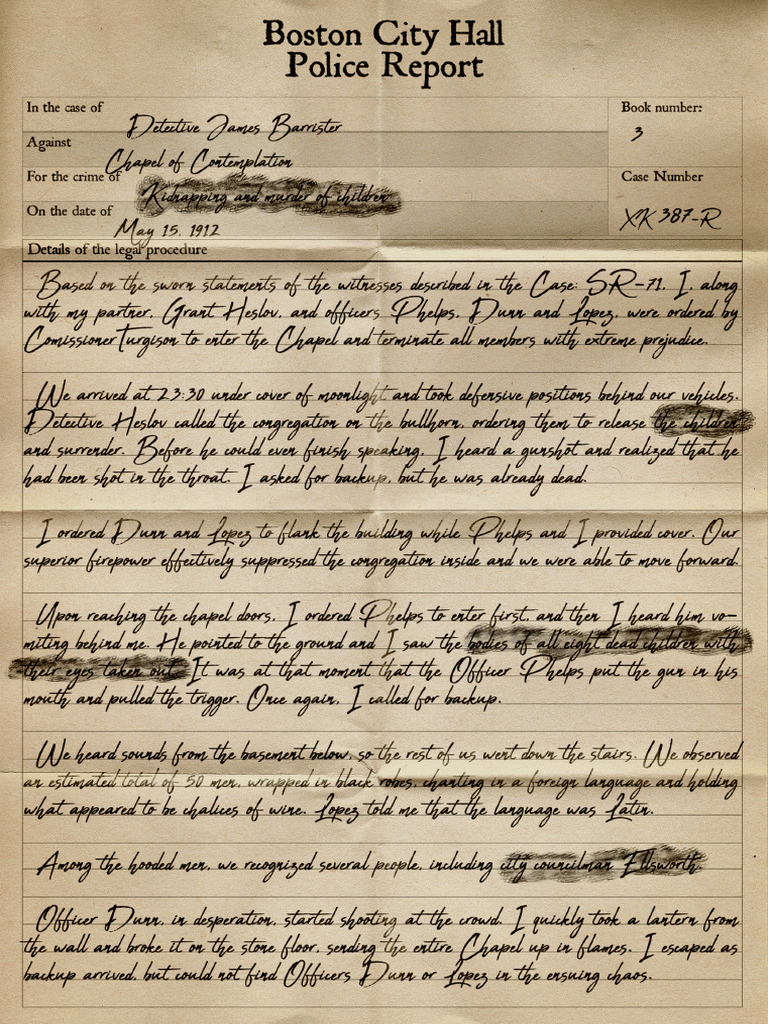 Boston City Hall
Police Report
In the case of
Detective James Barrister
Book number:
3
Against
Chapel of Contemplation
For the crime of
Kidnapping and murder of children
Case Number
XK 387-R
On the date of
May 15, 1912
Details of the legal procedure
Based on the sworn statements of the witnesses described in the Case: SR-71, I, along
with my partner, Grant Heslov, and officers Phelps, Dunn and Lopez, were ordered by
Comissioner Turgison to enter the Chapel and terminate all members with extreme prejudice.
We arrived at 23:30 under cover of moonlight and took defensive positions behind our vehicles.
Detective Heslov called the congregation on the bullhorn, ordering them to release the children
and surrender. Before he could even finish speaking, I heard a gunshot and realized that he
had been shot in the throat. I asked for backup, but he was already dead.
I ordered Dunn and Lopez to flank the building while Phelps and I provided cover. Our
superior firepower effectively suppressed the congregation inside and we were able to move forward.
Upon reaching the chapel doors, I ordered Phelps to enter first, and then I heard him vo-
miting behind me. He pointed to the ground and I saw the bodies of all eight dead children with
their eyes taken out. It was at that moment that the Officer Phelps put the gun in his
mouth and pulled the trigger. Once again, I called for backup.
We heard sounds from the basement below, so the rest of us went down the stairs. We observed
an estimated total of 50 men, wrapped in black robes, chanting in a foreign language and holding
what appeared to be chalices of wine. Lopez told me that the language was Latin.
Among the hooded men, we recognized several people, including city councilman Ellsworth.
Officer Dunn, in desperation, started shooting at the crowd. I quickly took a lantern from
the wall and broke it on the stone floor, sending the entire Chapel up in flames. I escaped as
backup arrived, but could not find Officers Dunn or Lopez in the ensuing chaos.